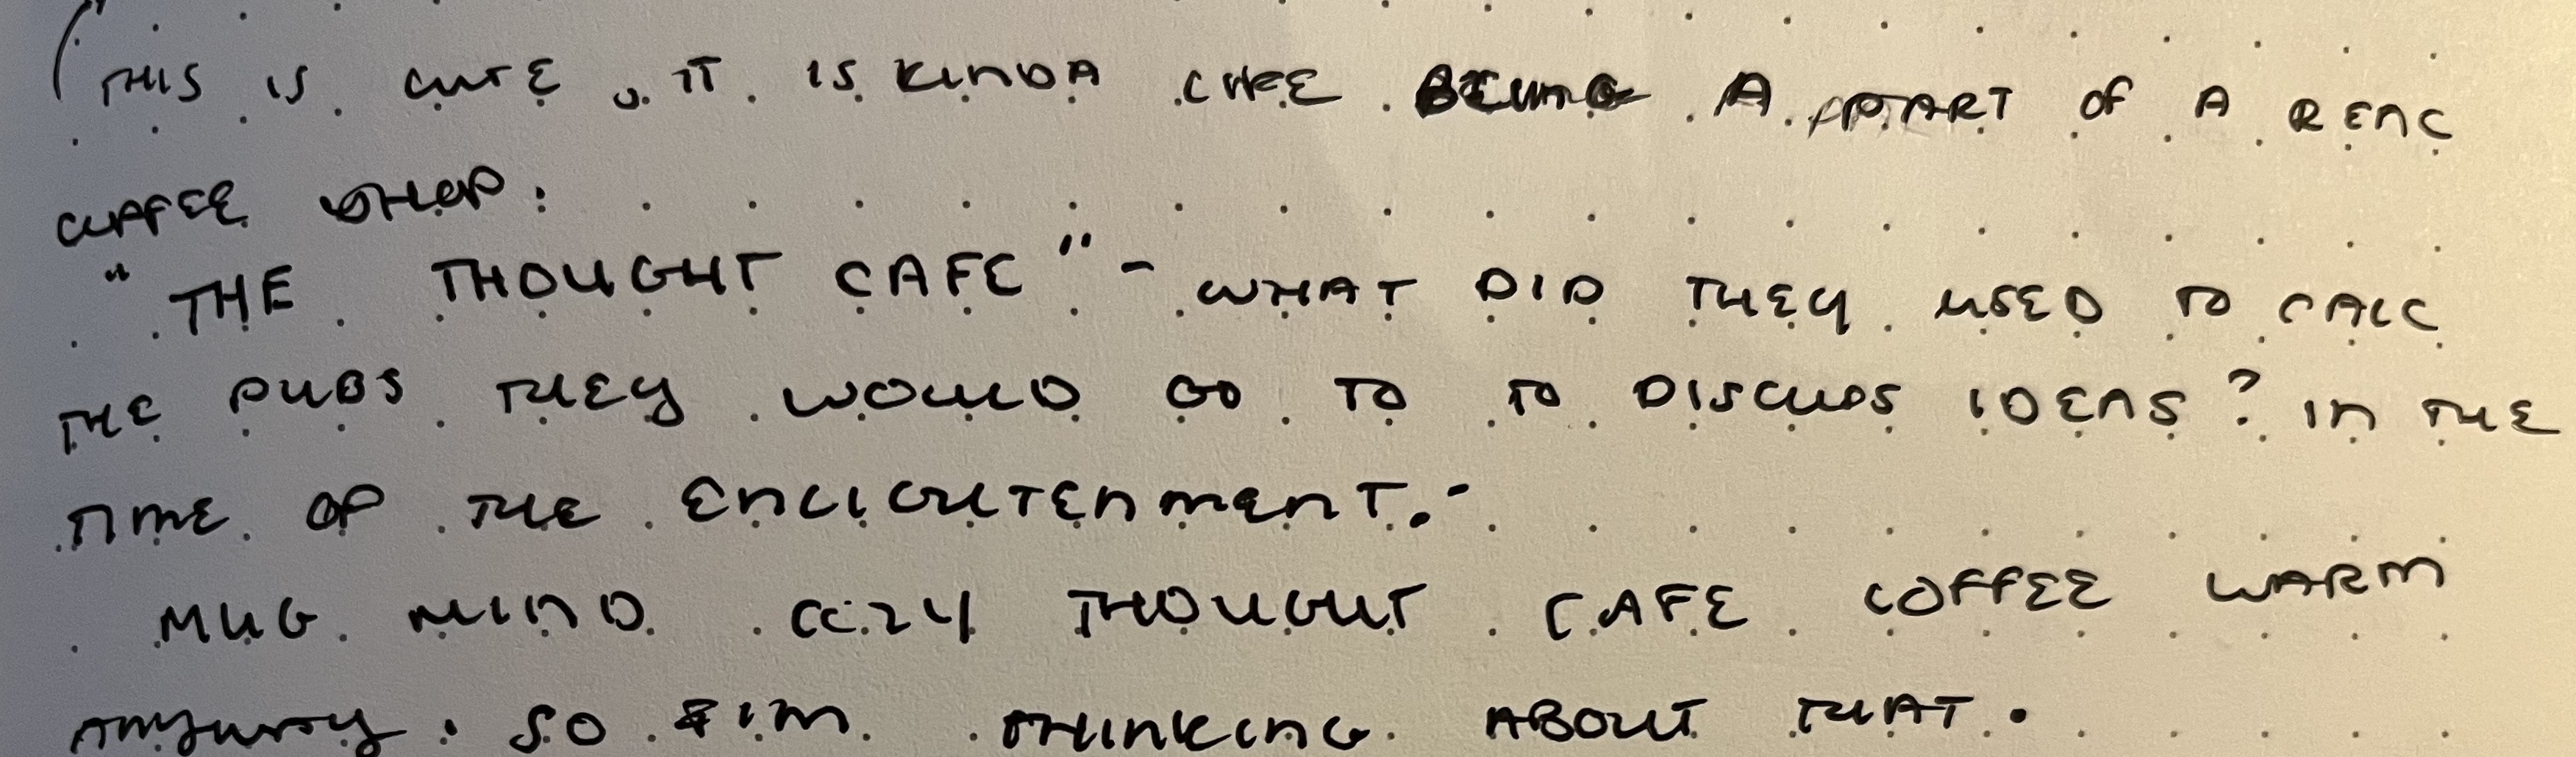 (THIS IS CUTE. IT IS KINDA LIKE BEING A PART OF A REAL
COFFEE SHOP.
"THE THOUGHT CAFE" - WHAT DID THEY USED TO CALL
THE PUBS THEY WOULD GO TO TO DISCUSS IDEAS? IN THE
TIME OF THE ENLIGHTENMENT. -
MUG MIND THOUGHT CAFE COFFEE WARM
ANYWAY. SO I'M THINKING ABOUT THAT.